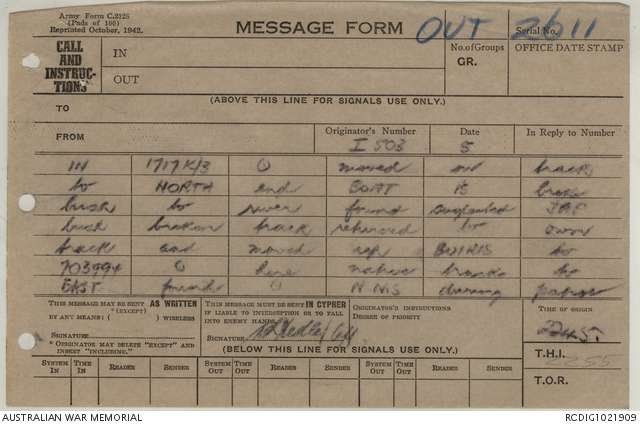 Army Form C.2128
(Pads of 100)
Reprinted October, 1942.
MESSAGE FORM
OUT 2611
Serial No.
CALL AND INSTRUCTIONS
IN
OUT
No. of Groups
GR.
OFFICE DATE STAMP
(ABOVE THIS LINE FOR SIGNALS USE ONLY.)
TO
FROM
Originator's Number
I 503
Date
5
In Reply to Number
IN 1717K/3 O moved on track
to NORTH end BOAT broke
bush to river found JAP
bush broken track returned to own
track and moved up to
703994 O here native tracks to
EAST found O N MS during patrol
THIS MESSAGE MAY BE SENT AS WRITTEN
(EXCEPT)
BY ANY MEANS ( ) WIRELESS
SIGNATURE
* ORIGINATOR MAY DELETE "EXCEPT" AND
INSERT "INCLUDING."
THIS MESSAGE MUST BE SENT IN CYPHER
IF LIABLE TO INTERCEPTION OR TO FALL
INTO ENEMY HANDS.
SIGNATURE
ORIGINATOR'S INSTRUCTIONS
DEGREE OF PRIORITY
TIME OF ORIGIN
2245
(BELOW THIS LINE FOR SIGNALS USE ONLY.)
T.H.I.
SYSTEM IN TIME IN READER SENDER SYSTEM OUT TIME OUT READER SENDER SYSTEM OUT TIME OUT READER SENDER
T.O.R.
AUSTRALIAN WAR MEMORIAL
RCDIG1021909